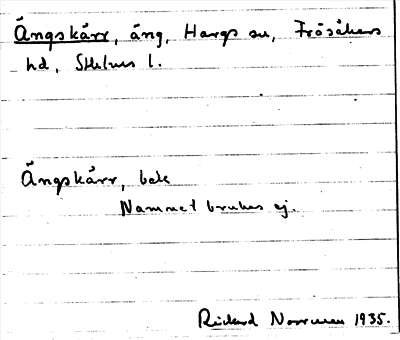 Ängskärr, äng, Hargs sn, Frösåkers
hd, Sthlms l.
Ängskärr, bek
Nammet brukas ej.
Rickard Norrman 1935.